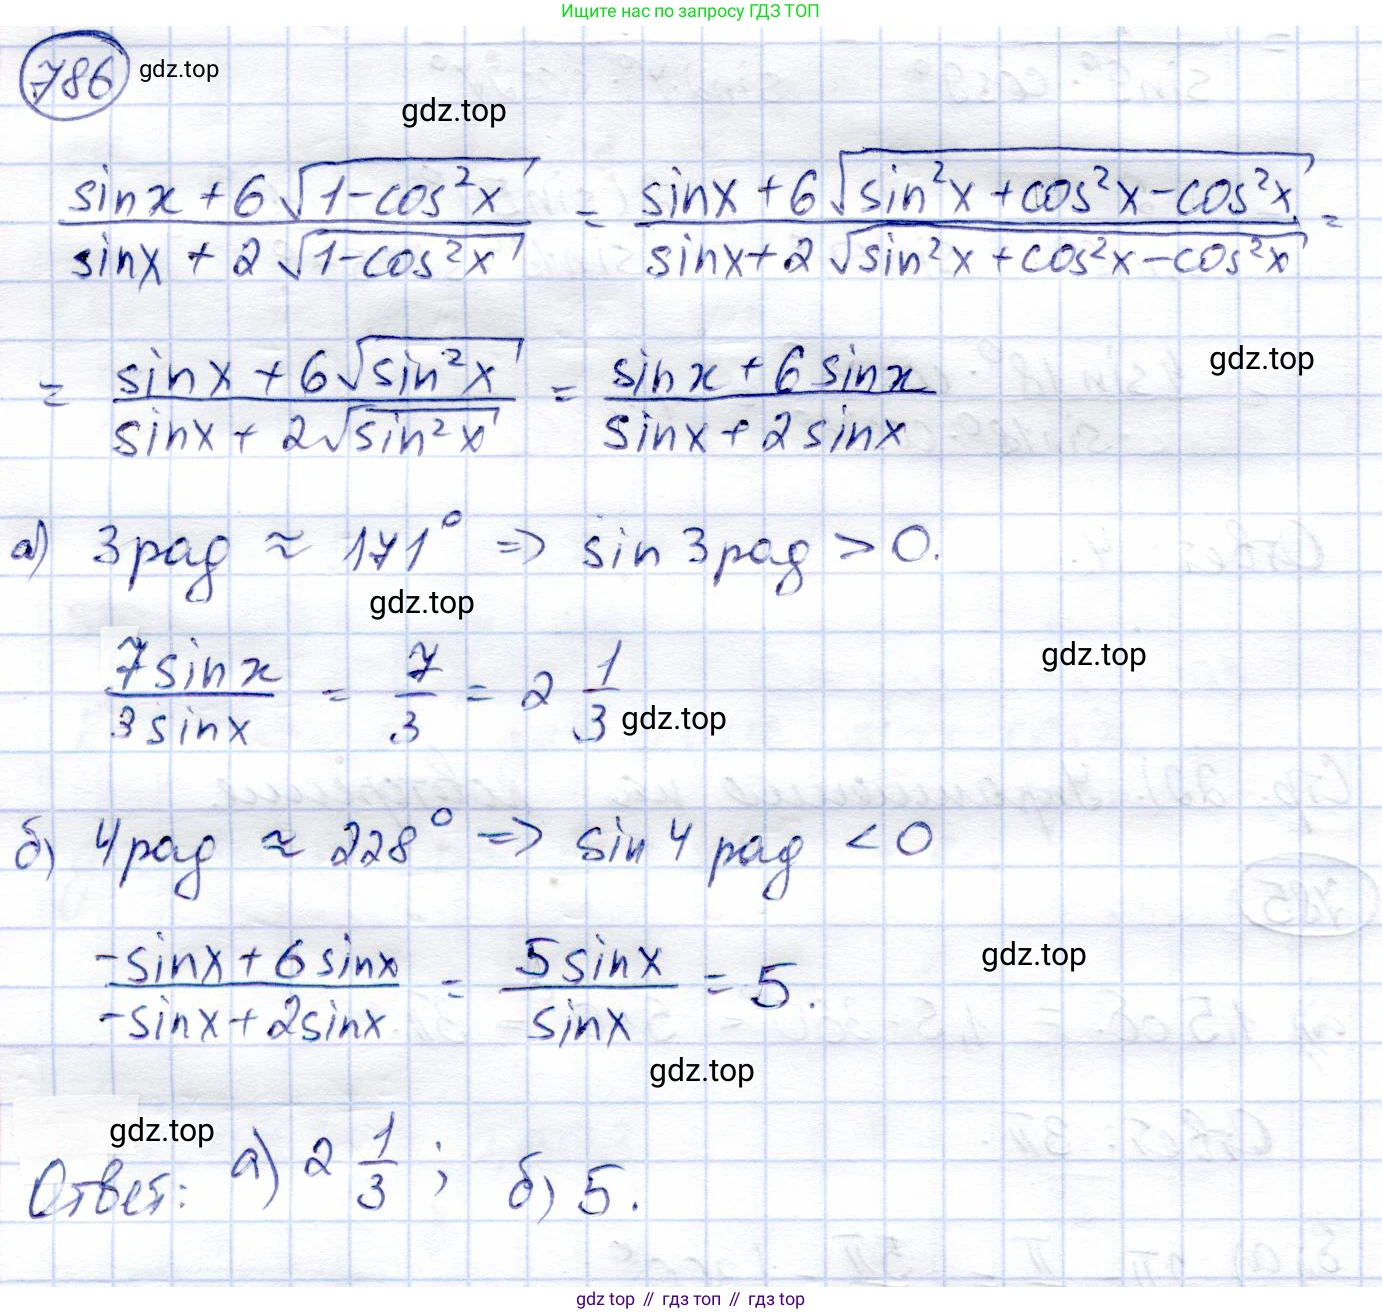 Ищите нас по запросу ГДЗ ТОП
786 gdz.top
gdz.top
(sinx + 6√(1-cos²x))/(sinx + 2√(1-cos²x)) = (sinx + 6√(sin²x + cos²x - cos²x))/(sinx + 2√(sin²x + cos²x - cos²x)) =
= (sinx + 6√(sin²x))/(sinx + 2√(sin²x)) = (sinx + 6sinx)/(sinx + 2sinx)
gdz.top
а) 3рад ≈ 171° => sin 3рад > 0.
gdz.top
7sinx/3sinx = 7/3 = 2 1/3
gdz.top
gdz.top
б) 4рад ≈ 228° => sin 4 рад < 0
(-sinx + 6sinx)/(-sinx + 2sinx) = 5sinx/sinx = 5.
gdz.top
gdz.top
gdz.top
Ответ: а) 2 1/3 ; б) 5.
gdz top // гдз топ // гдз top